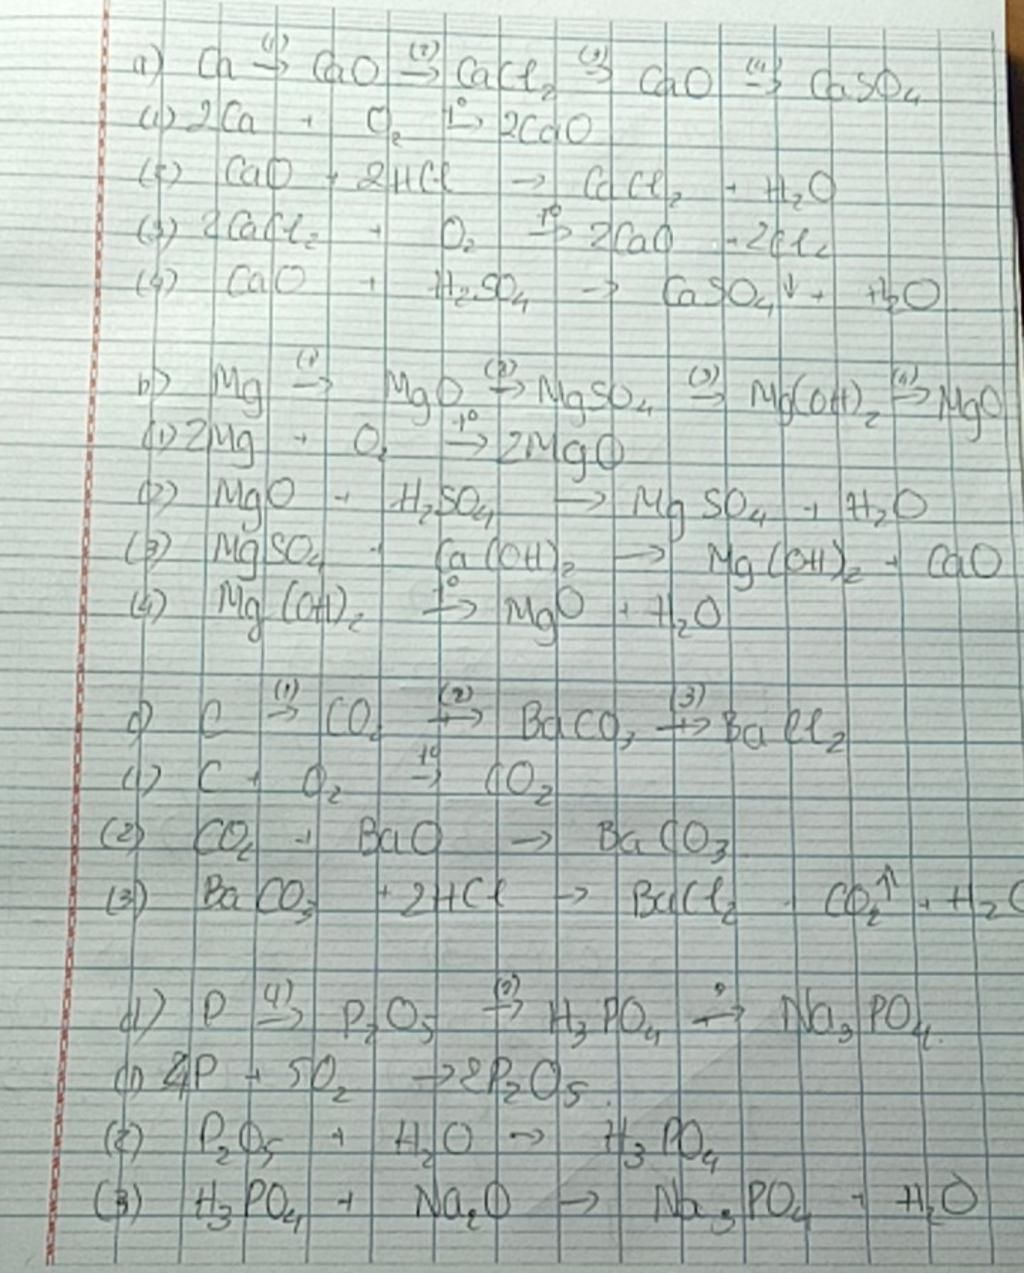 a) Ca (1)→ CaO (2)→ CaCl₂ (3)→ CaO (4)→ CaSO₄
(1) 2Ca + O₂ t°→ 2CaO
(2) CaO + 2HCl → CaCl₂ + H₂O
(3) 2CaCl₂ + O₂ t°→ 2CaO + 2Cl₂
(4) CaO + H₂SO₄ → CaSO₄↓ + H₂O
b) Mg (1)→ MgO (2)→ MgSO₄ (3)→ Mg(OH)₂ (4)→ MgO
(1) 2Mg + O₂ t°→ 2MgO
(2) MgO + H₂SO₄ → MgSO₄ + H₂O
(3) MgSO₄ + Ca(OH)₂ → Mg(OH)₂ + CaO
(4) Mg(OH)₂ t°→ MgO + H₂O
c) C (1)→ CO₂ (2)→ BaCO₃ (3)→ BaCl₂
(1) C + O₂ t°→ CO₂
(2) CO₂ + BaO → BaCO₃
(3) BaCO₃ + 2HCl → BaCl₂ + CO₂↑ + H₂O
d) P (1)→ P₂O₅ (2)→ H₃PO₄ → Na₃PO₄
(1) 4P + 5O₂ → 2P₂O₅
(2) P₂O₅ + H₂O → H₃PO₄
(3) H₃PO₄ + Na₂O → Na₃PO₄ + H₂O